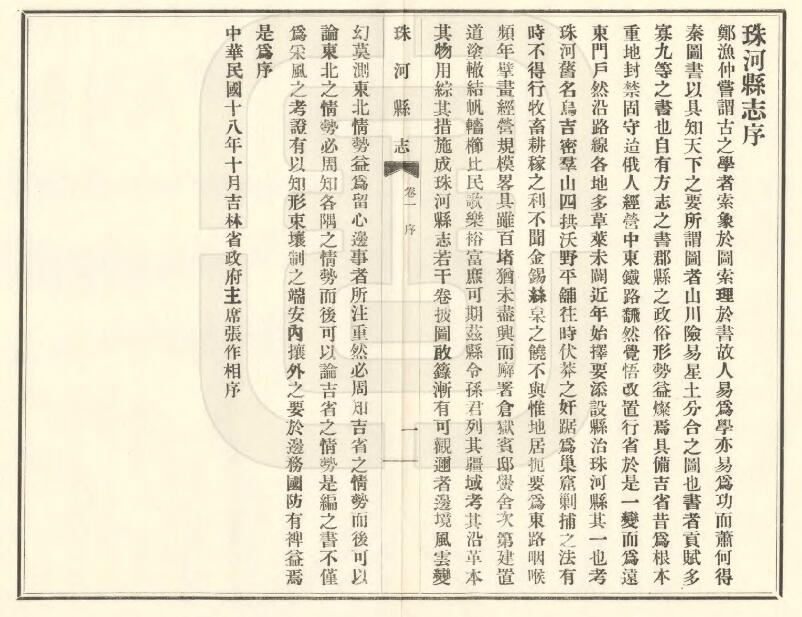 珠河縣志序
鄭漁仲嘗謂古之學者索象於圖索理於書故人易爲學亦易爲功而蕭何得
秦圖書以具知天下之要所謂圖者山川險易星土分合之圖也書者貢賦多
寡九等之書也自有方志之書郡縣之政俗形勢益燦焉具備吉省昔爲根本
重地封禁固守迨俄人經營中東鐵路飜然覺悟改置行省於是一變而爲遠
東門戶然沿路線各地多草萊未闢近年始擇要添設縣治珠河縣其一也考
珠河舊名烏吉密羣山四拱沃野平舖往時伏莽之奸踞爲巢窟剿捕之法有
時不得行牧畜耕稼之利不聞金錫絲枲之饒不與惟地居扼要爲東路咽喉
頻年擘畫經營規模畧具雖百堵猶未盡興而廨署倉獄賓邸黌舍次第建置
道塗轍結帆檣櫛比民歌樂裕富庶可期茲縣令孫君列其疆域考其沿革本
其物用綜其措施成珠河縣志若干卷披圖啟籙漸有可觀邇者邊境風雲變
珠河縣志
卷一 序
一
幻莫測東北情勢益爲留心邊事者所注重然必周知吉省之情勢而後可以
論東北之情勢必周知各隅之情勢而後可以論吉省之情勢是編之書不僅
爲采風之考證有以知形束壤制之端安內攘外之要於邊務國防有裨益焉
是爲序
中華民國十八年十月吉林省政府主席張作相序